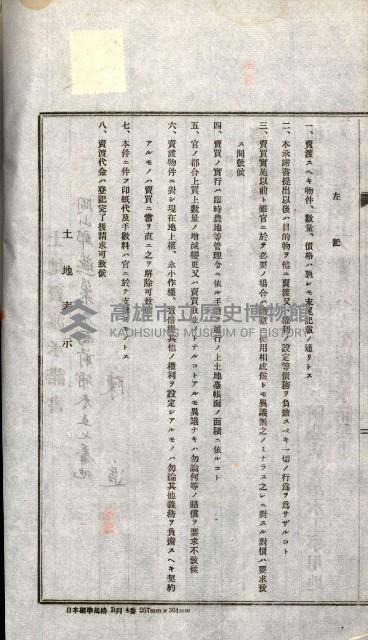 左記
一、賣渡スヘキ物件、數量、價格ハ總レモ末尾記載ノ通リトス
二、本承諾書提出以後ハ目的物ヲ他ニ賣渡又ハ權利ノ設定等債務ヲ負擔スベキ一切ノ行爲ヲ爲サザルコト
三、賣買實施以前ト雖官ニ於テ必要ノ場合ハ使用相成候トモ異議無之ノミナラズ之レニ對スル對價ハ要求致
ス間敷候
四、賣買ノ實行ハ臨時農地等管理令ニ依ル手續ノ進行ノ上土地臺帳面ノ面積ニ依ルコト
五、官ノ都合上買上數量ノ增減變更又ハ賣買取止トナルコトアルモ異議ナキハ勿論何等ノ賠償ヲ要求不致候
六、賣渡物件ニ對シ現在地上權、永小作權、賃借權其他ノ權利ヲ設定シアルモノハ勿論其他義務ヲ負擔スヘキ契約
アルモノハ賣買ニ當リ直ニ之ヲ解除可致
七、本件ニ伴フ印紙代及手數料ハ官ニ於テ支
トス
八、賣渡代金ハ登記完了後請求可致候
土地表示
高雄市立歷史博物館
KAOHSIUNG MUSEUM OF HISTORY
日本標準規格 B列4番 257mm×364mm